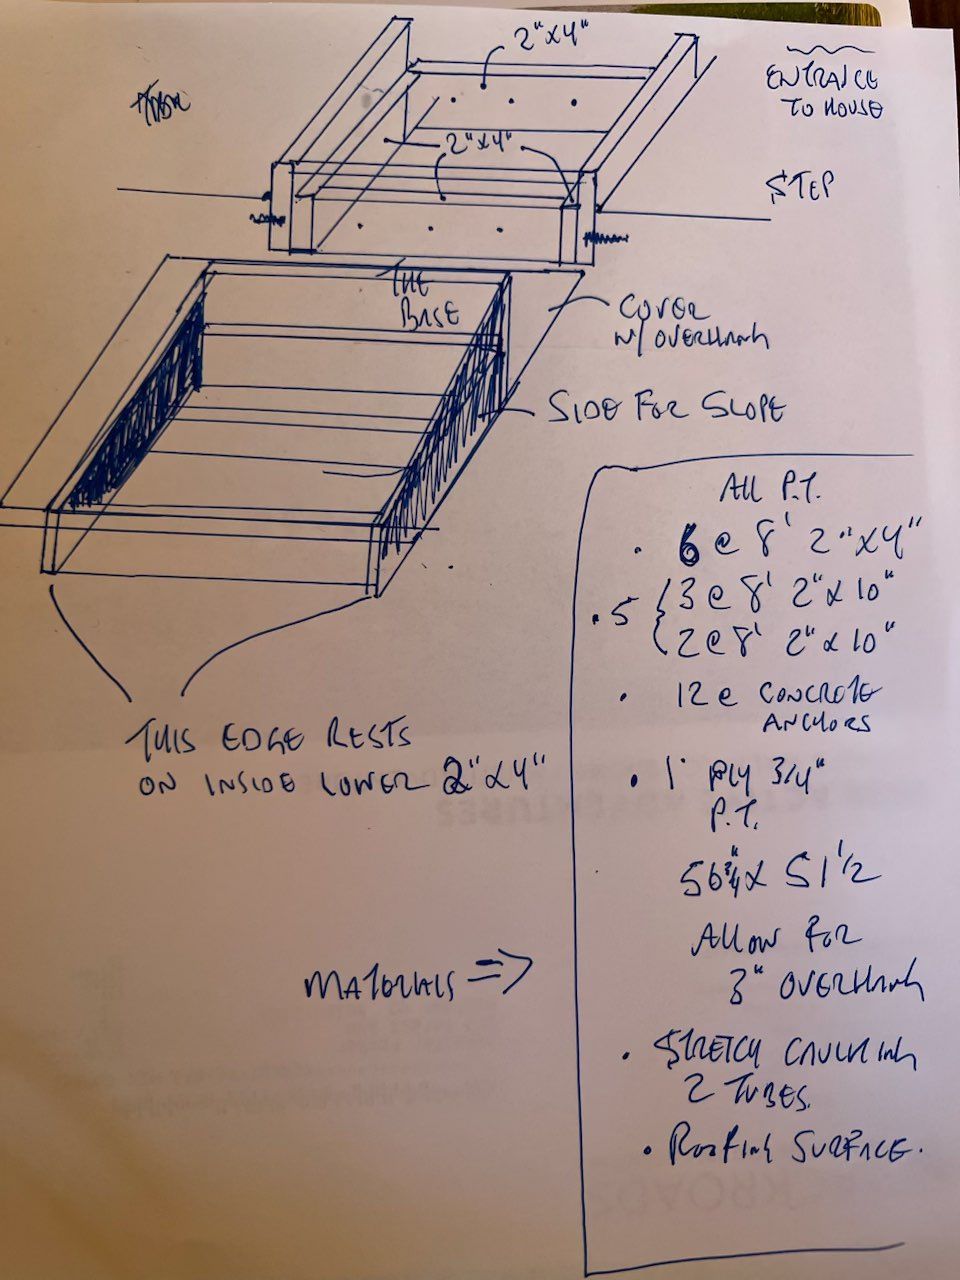 2"x4"
ENTRANCE
TO HOUSE
2"x4"
STEP
THE
BASE
COVER
W/ OVERHANG
SIDE FOR SLOPE
THIS EDGE RESTS
ON INSIDE LOWER 2"x4"
MATERIALS =>
All P.T.
• 6 @ 8' 2"x4"
• 5 { 3 @ 8' 2"x10"
2 @ 8' 2"x10"
• 12 @ CONCRETE
ANCHORS
• 1 PLY 3/4"
P.T.
56 3/4" x 51 1/2
ALLOW FOR
3" OVERHANG
• STRETCH CAULKING
2 TUBES.
• ROOFING SURFACE.